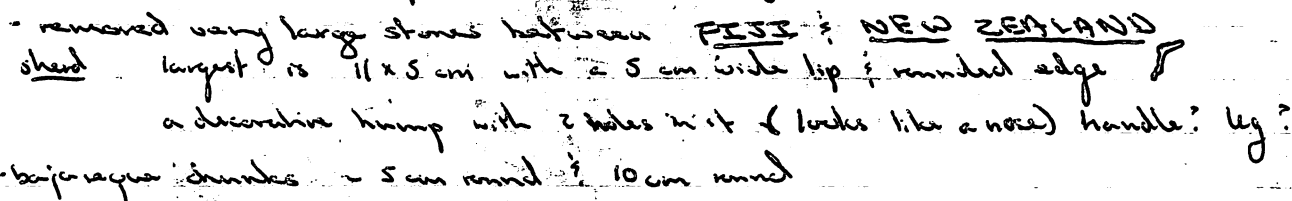 - removed very large stones between FIJI & NEW ZEALAND
sherd largest is 11 x 5 cm with a 5 cm wide lip & rounded edge
a decorative hump with 2 holes in it (looks like a nose) handle? leg?
- bajareque chunks ~ 5 cm round & 10 cm round